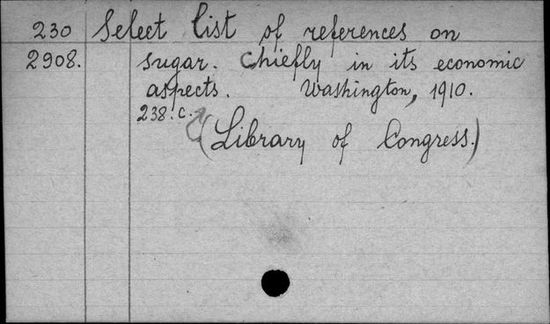 230 Select list of references on
2908. sugar. Chiefly in its economic
aspects. Washington, 1910.
238.c.
(Library of Congress.)